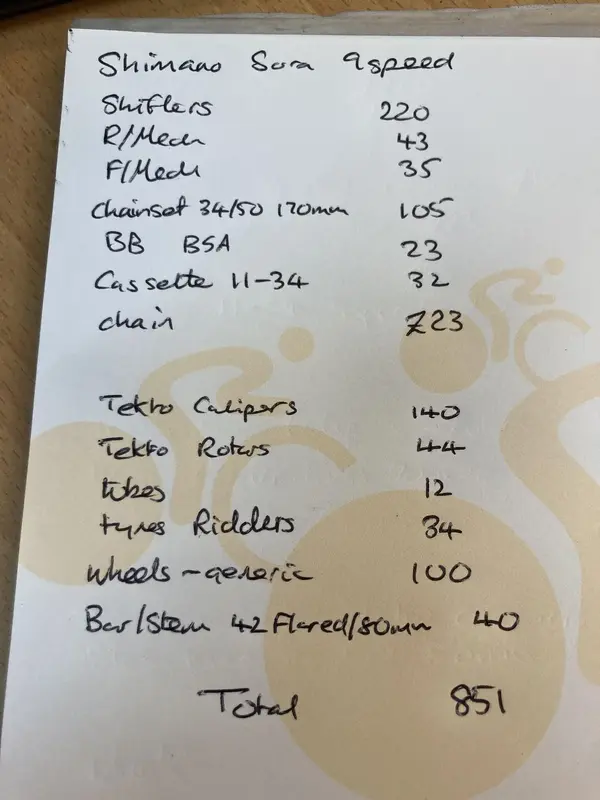 Shimano Sora 9speed
Shifters 220
R/Mech 43
F/Mech 35
Chainset 34/50 170mm 105
BB BSA 23
Cassette 11-34 32
chain 23
Tektro Calipers 140
Tektro Rotors 44
tubes 12
tyres Ridders 34
Wheels - generic 100
Bar/Stem 42 Flared/80mm 40
Total 851